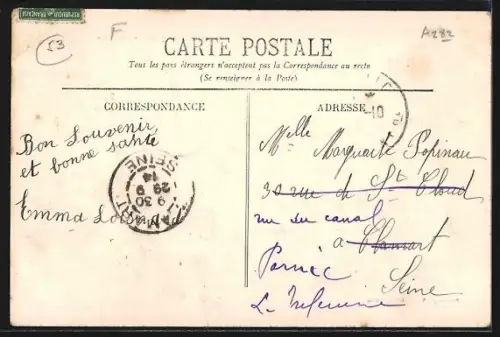 REPUBLIQUE FRANÇAISE
53
F
A282
CARTE POSTALE
Tous les pays étrangers n'acceptent pas la Correspondance au recto
(Se renseigner à la Poste)
CORRESPONDANCE
ADRESSE
Bon Souvenir
et bonne santé
Emma
SEINE
9 30
29 9
14
10
Melle
Marguerite Papineau
30 rue de St Cloud
rue du canal
à Clamart
Pornic
Seine
L. Inférieure